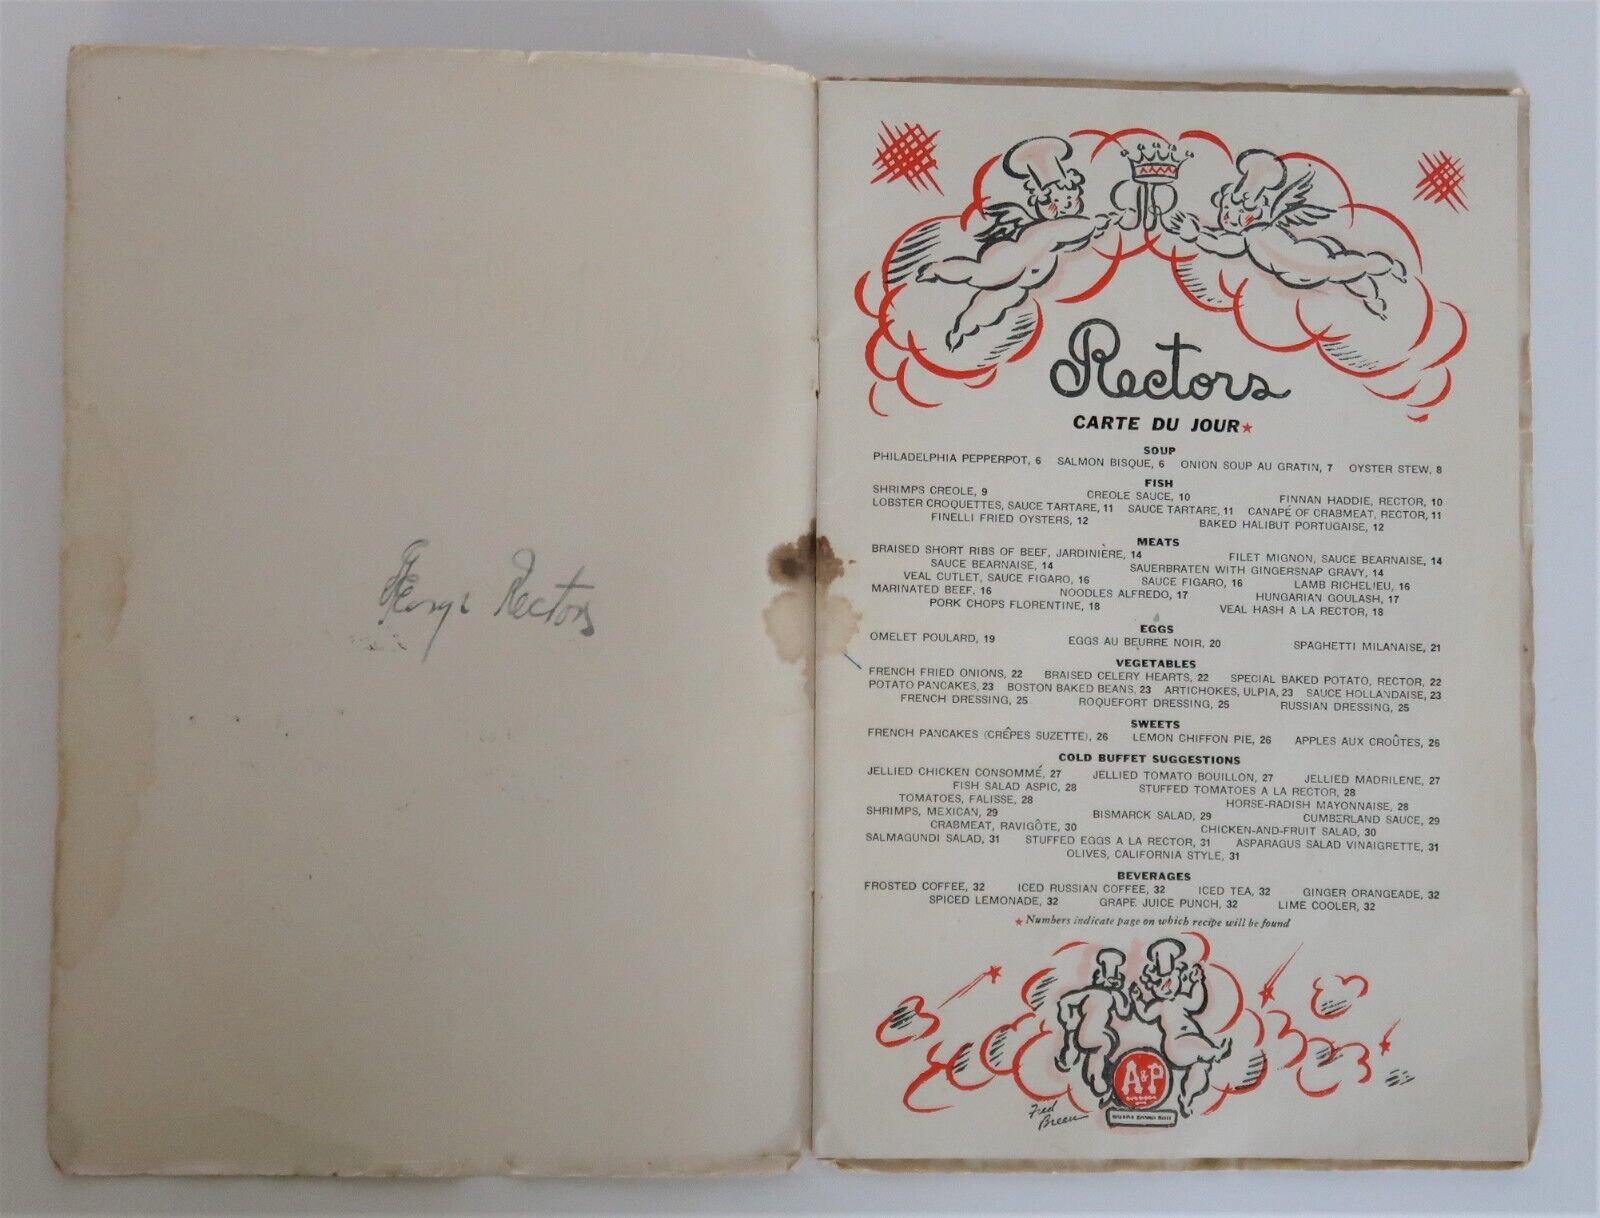 George Rectors
R
Rectors
CARTE DU JOUR★
SOUP
PHILADELPHIA PEPPERPOT, 6 SALMON BISQUE, 6 ONION SOUP AU GRATIN, 7 OYSTER STEW, 8
FISH
SHRIMPS CREOLE, 9 CREOLE SAUCE, 10 FINNAN HADDIE, RECTOR, 10
LOBSTER CROQUETTES, SAUCE TARTARE, 11 SAUCE TARTARE, 11 CANAPÉ OF CRABMEAT, RECTOR, 11
FINELLI FRIED OYSTERS, 12 BAKED HALIBUT PORTUGAISE, 12
MEATS
BRAISED SHORT RIBS OF BEEF, JARDINIÈRE, 14 FILET MIGNON, SAUCE BEARNAISE, 14
SAUCE BEARNAISE, 14 SAUERBRATEN WITH GINGERSNAP GRAVY, 14
VEAL CUTLET, SAUCE FIGARO, 16 SAUCE FIGARO, 16 LAMB RICHELIEU, 16
MARINATED BEEF, 16 NOODLES ALFREDO, 17 HUNGARIAN GOULASH, 17
PORK CHOPS FLORENTINE, 18 VEAL HASH A LA RECTOR, 18
EGGS
OMELET POULARD, 19 EGGS AU BEURRE NOIR, 20 SPAGHETTI MILANAISE, 21
VEGETABLES
FRENCH FRIED ONIONS, 22 BRAISED CELERY HEARTS, 22 SPECIAL BAKED POTATO, RECTOR, 22
POTATO PANCAKES, 23 BOSTON BAKED BEANS, 23 ARTICHOKES, ULPIA, 23 SAUCE HOLLANDAISE, 23
FRENCH DRESSING, 25 ROQUEFORT DRESSING, 25 RUSSIAN DRESSING, 25
SWEETS
FRENCH PANCAKES (CRÊPES SUZETTE), 26 LEMON CHIFFON PIE, 26 APPLES AUX CROÛTES, 26
COLD BUFFET SUGGESTIONS
JELLIED CHICKEN CONSOMMÉ, 27 JELLIED TOMATO BOUILLON, 27 JELLIED MADRILENE, 27
FISH SALAD ASPIC, 28 STUFFED TOMATOES A LA RECTOR, 28
TOMATOES, FALISSE, 28 HORSE-RADISH MAYONNAISE, 28
SHRIMPS, MEXICAN, 29 BISMARCK SALAD, 29 CUMBERLAND SAUCE, 29
CRABMEAT, RAVIGÔTE, 30 CHICKEN-AND-FRUIT SALAD, 30
SALMAGUNDI SALAD, 31 STUFFED EGGS A LA RECTOR, 31 ASPARAGUS SALAD VINAIGRETTE, 31
OLIVES, CALIFORNIA STYLE, 31
BEVERAGES
FROSTED COFFEE, 32 ICED RUSSIAN COFFEE, 32 ICED TEA, 32 GINGER ORANGEADE, 32
SPICED LEMONADE, 32 GRAPE JUICE PUNCH, 32 LIME COOLER, 32
★ Numbers indicate page on which recipe will be found
A&P
Fred
Breen